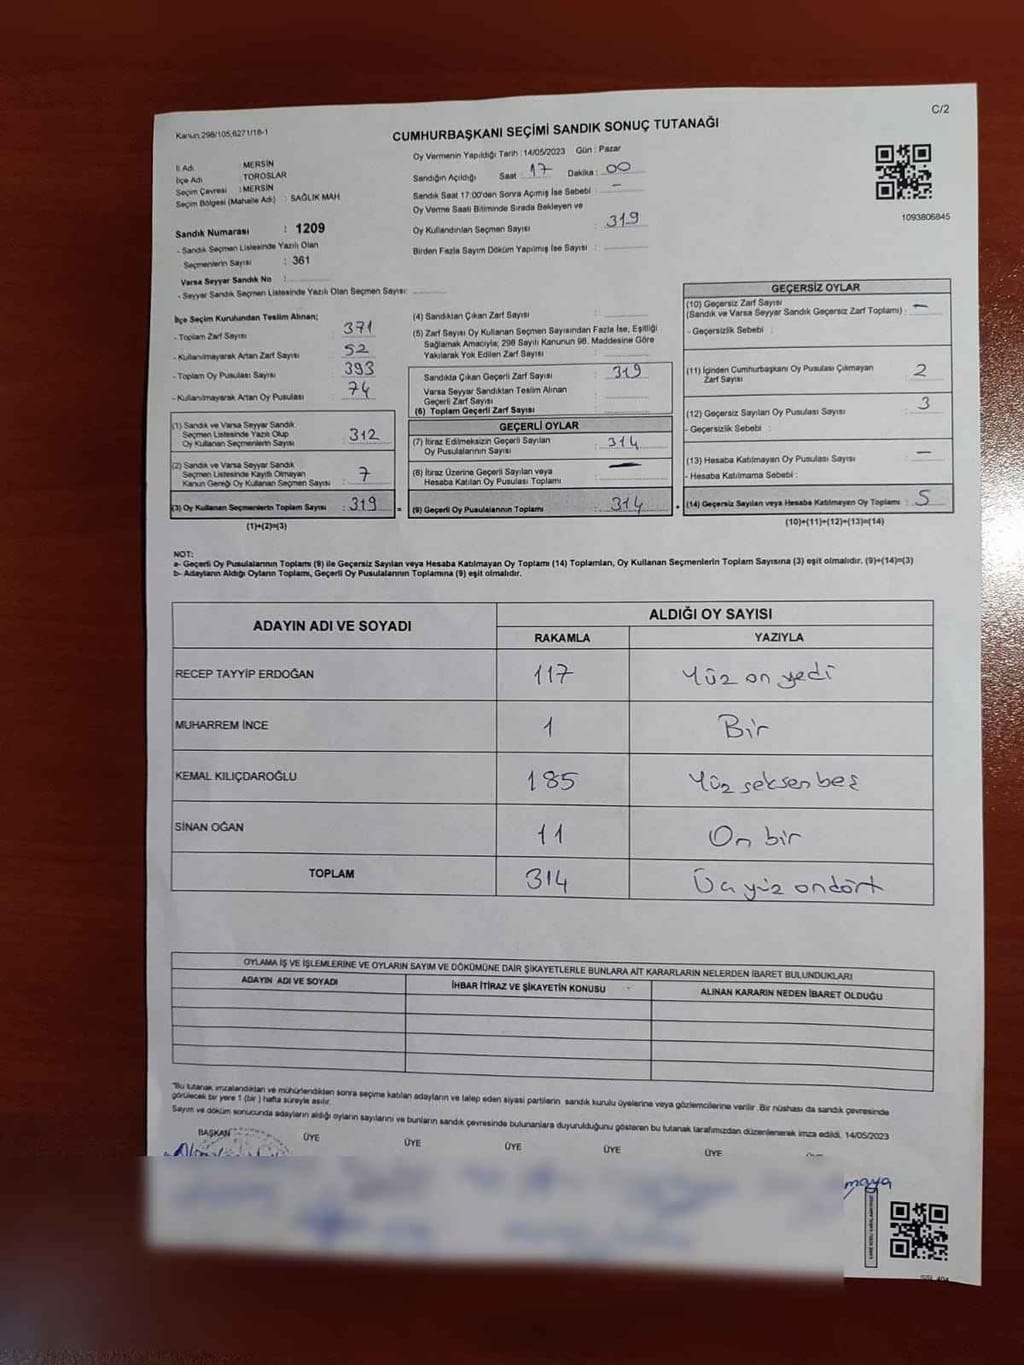 C/2
Kanun.298/105,6271/18-1
CUMHURBAŞKANI SEÇİMİ SANDIK SONUÇ TUTANAĞI
İl Adı : MERSİN
İlçe Adı : TOROSLAR
Seçim Çevresi : MERSİN
Seçim Bölgesi (Mahalle Adı) : SAĞLIK MAH
Sandık Numarası : 1209
- Sandık Seçmen Listesinde Yazılı Olan
Seçmenlerin Sayısı : 361
Varsa Seyyar Sandık No :
- Seyyar Sandık Seçmen Listesinde Yazılı Olan Seçmen Sayısı:
Oy Vermenin Yapıldığı Tarih : 14/05/2023 Gün : Pazar
Sandığın Açıldığı Saat : 17 Dakika : 00
Sandık Saat 17:00'den Sonra Açımış İse Sebebi : –
Oy Verme Saati Bitiminde Sırada Bekleyen ve
Oy Kullandırılan Seçmen Sayısı : 319
Birden Fazla Sayım Döküm Yapılmış İse Sayısı :
1093806845
İlçe Seçim Kurulundan Teslim Alınan;
- Toplam Zarf Sayısı : 371
- Kullanılmayarak Artan Zarf Sayısı : 52
- Toplam Oy Pusulası Sayısı : 393
- Kullanılmayarak Artan Oy Pusulası : 74
(1) Sandık ve Varsa Seyyar Sandık
Seçmen Listesinde Yazılı Olup
Oy Kullanan Seçmenlerin Sayısı : 312
(2) Sandık ve Varsa Seyyar Sandık
Seçmen Listesinde Kayıtlı Olmayan
Kanun Gereği Oy Kullanan Seçmen Sayısı : 7
(3) Oy Kullanan Seçmenlerin Toplam Sayısı : 319 =
(1)+(2)=(3)
(4) Sandıktan Çıkan Zarf Sayısı :
(5) Zarf Sayısı Oy Kullanan Seçmen Sayısından Fazla İse, Eşitliği
Sağlamak Amacıyla; 298 Sayılı Kanunun 98. Maddesine Göre
Yakılarak Yok Edilen Zarf Sayısı :
Sandıkta Çıkan Geçerli Zarf Sayısı : 319
Varsa Seyyar Sandıktan Teslim Alınan
Geçerli Zarf Sayısı :
(6) Toplam Geçerli Zarf Sayısı :
GEÇERLİ OYLAR
(7) İtiraz Edilmeksizin Geçerli Sayılan
Oy Pusulalarının Sayısı : 314
(8) İtiraz Üzerine Geçerli Sayılan veya
Hesaba Katılan Oy Pusulası Toplamı : –
(9) Geçerli Oy Pusulalarının Toplamı : 314 +
GEÇERSİZ OYLAR
(10) Geçersiz Zarf Sayısı
(Sandık ve Varsa Seyyar Sandık Geçersiz Zarf Toplamı) : –
- Geçersizlik Sebebi :
(11) İçinden Cumhurbaşkanı Oy Pusulası Çıkmayan
Zarf Sayısı : 2
(12) Geçersiz Sayılan Oy Pusulası Sayısı : 3
- Geçersizlik Sebebi :
(13) Hesaba Katılmayan Oy Pusulası Sayısı : –
- Hesaba Katılmama Sebebi :
(14) Geçersiz Sayılan veya Hesaba Katılmayan Oy Toplamı : 5
(10)+(11)+(12)+(13)=(14)
NOT:
a- Geçerli Oy Pusulalarının Toplamı (9) ile Geçersiz Sayılan veya Hesaba Katılmayan Oy Toplamı (14) Toplamları, Oy Kullanan Seçmenlerin Toplam Sayısına (3) eşit olmalıdır. (9)+(14)=(3)
b- Adayların Aldığı Oyların Toplamı, Geçerli Oy Pusulalarının Toplamına (9) eşit olmalıdır.
ADAYIN ADI VE SOYADI ALDIĞI OY SAYISI
RAKAMLA YAZIYLA
RECEP TAYYİP ERDOĞAN 117 Yüz on yedi
MUHARREM İNCE 1 Bir
KEMAL KILIÇDAROĞLU 185 Yüz seksen beş
SİNAN OĞAN 11 On bir
TOPLAM 314 Üç yüz ondört
OYLAMA İŞ VE İŞLEMLERİNE VE OYLARIN SAYIM VE DÖKÜMÜNE DAİR ŞİKAYETLERLE BUNLARA AİT KARARLARIN NELERDEN İBARET BULUNDUKLARI
ADAYIN ADI VE SOYADI İHBAR İTİRAZ VE ŞİKAYETİN KONUSU ALINAN KARARIN NEDEN İBARET OLDUĞU
"Bu tutanak imzalandıktan ve mühürlendikten sonra seçime katılan adayların ve talep eden siyasi partilerin sandık kurulu üyelerine veya gözlemcilerine verilir .Bir nüshası da sandık çevresinde
görülecek bir yere 1 (bir ) hafta süreyle asılır.
Sayım ve döküm sonucunda adayların aldığı oyların sayılarını ve bunların sandık çevresinde bulunanlara duyurulduğunu gösteren bu tutanak tarafımızdan düzenlenerek imza edildi. 14/05/2023
BAŞKAN ÜYE ÜYE ÜYE ÜYE ÜYE